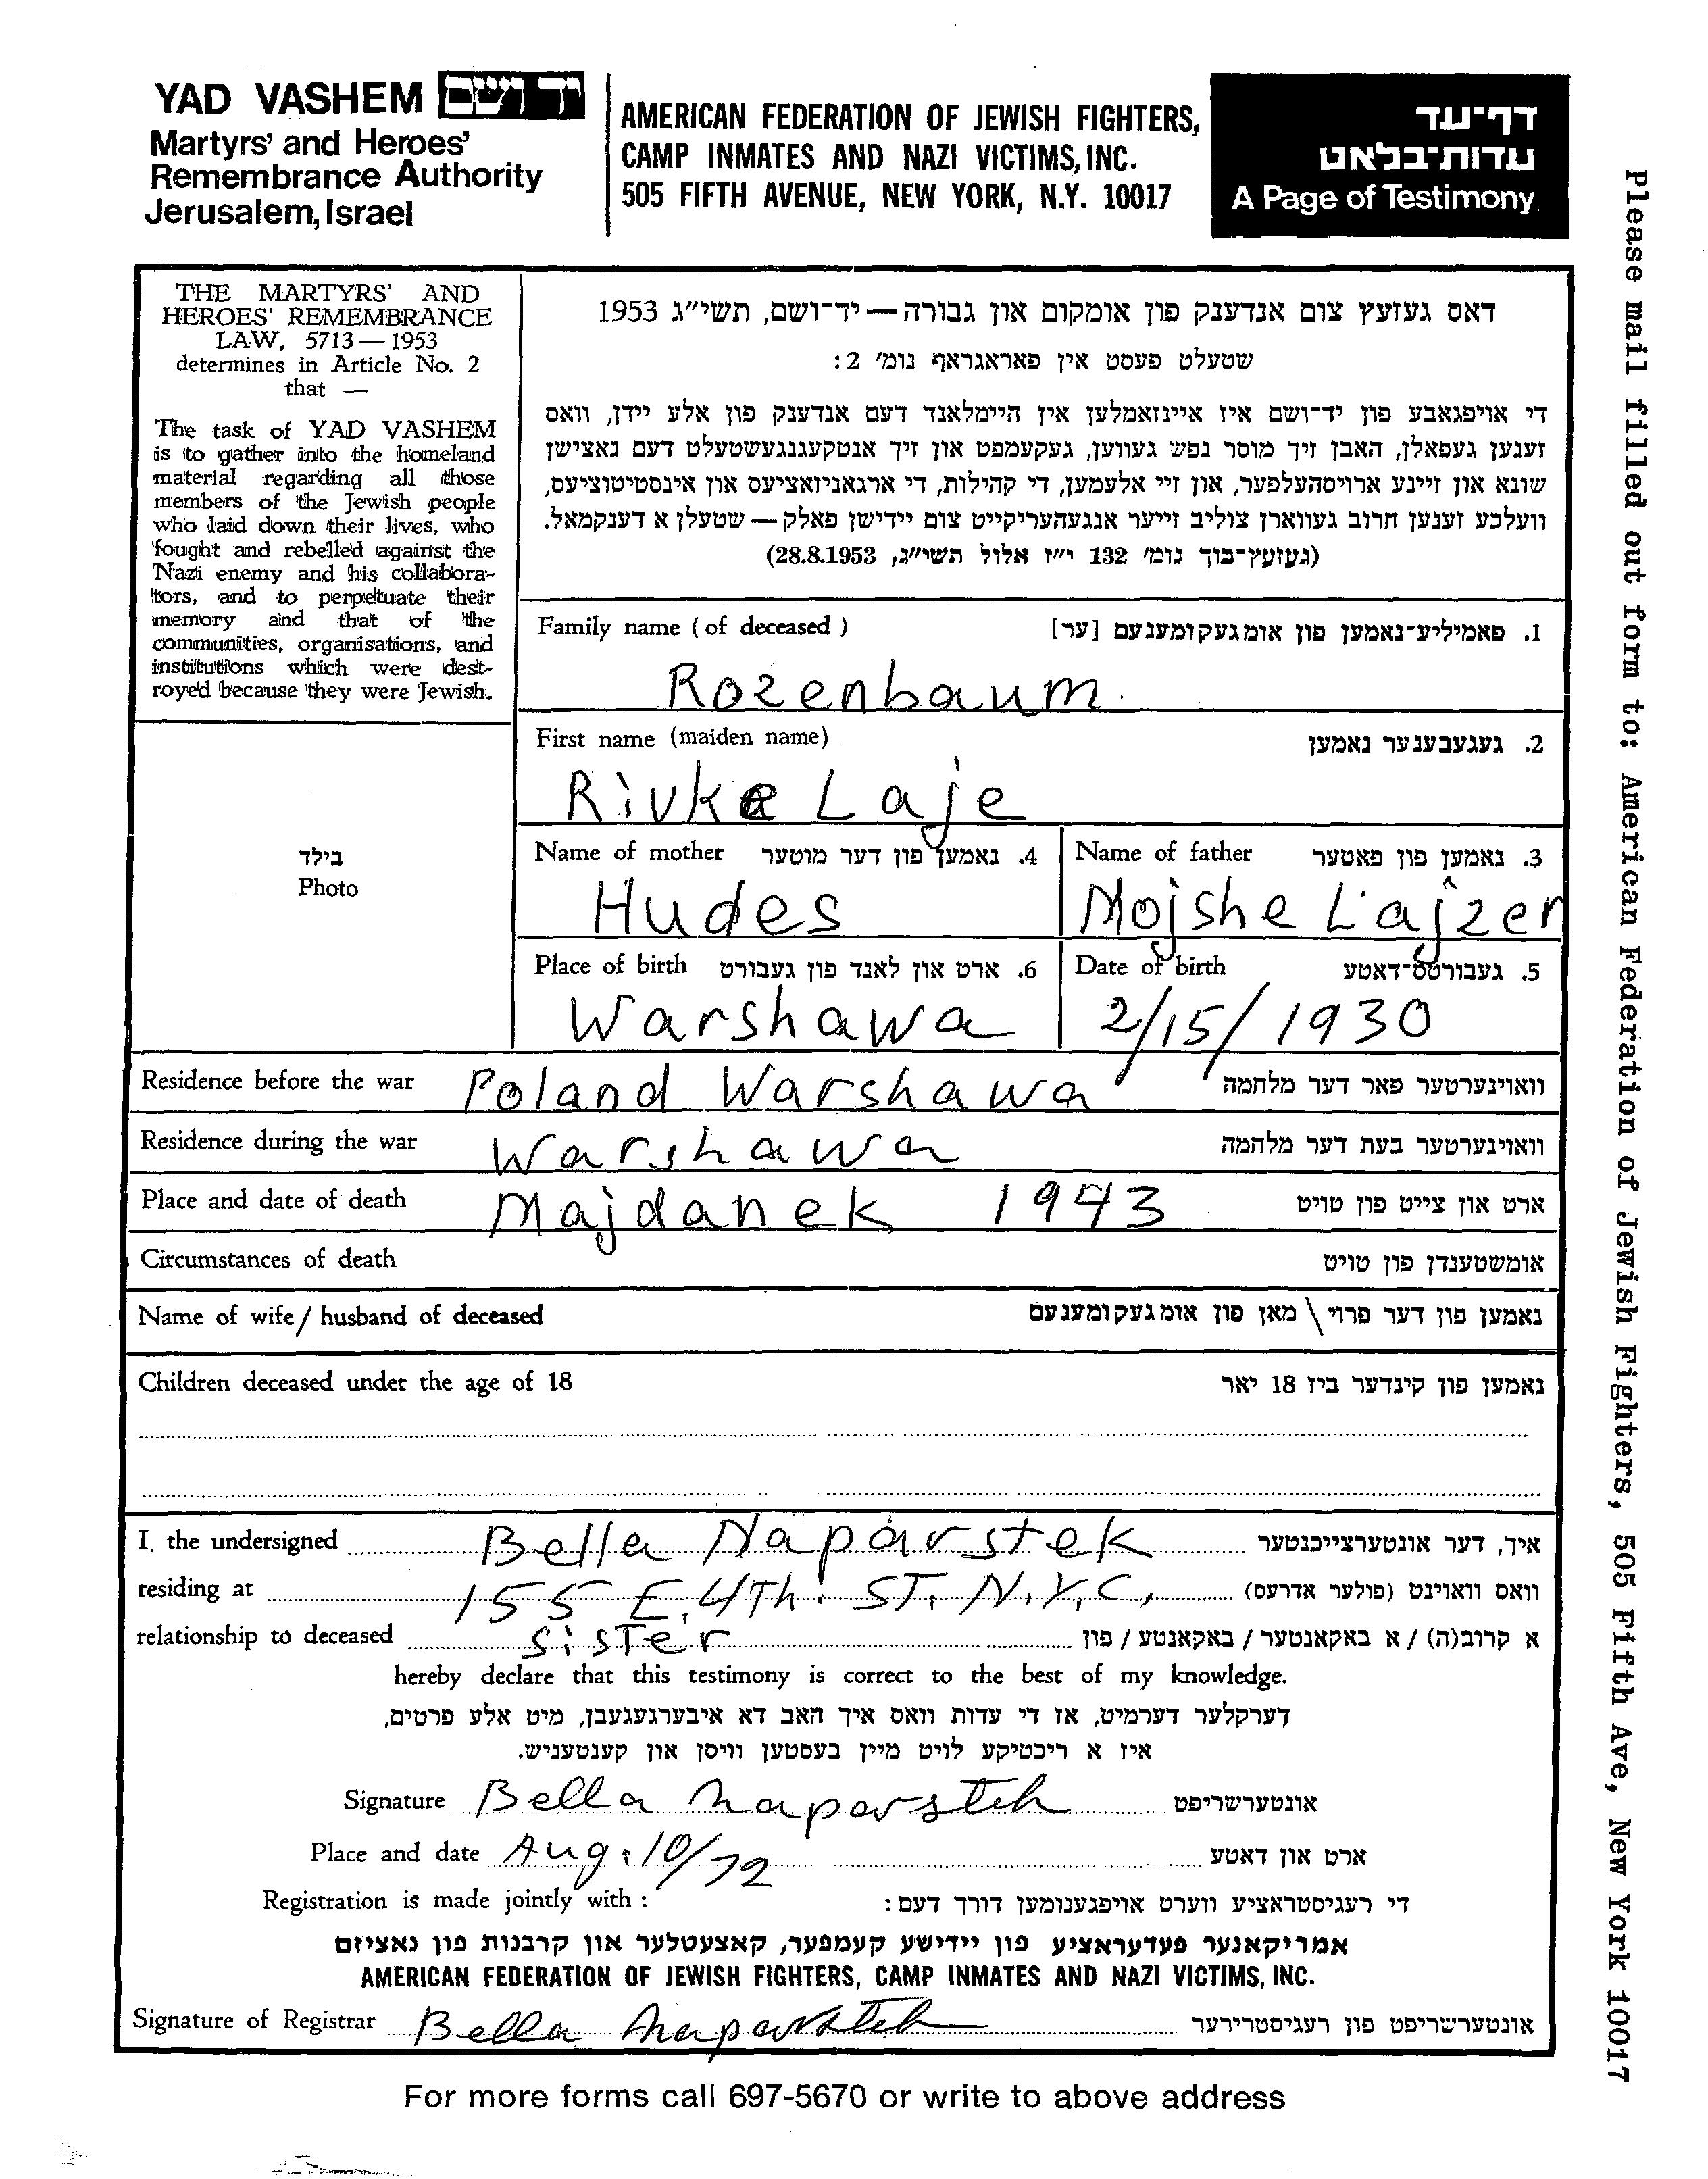 YAD VASHEM יד ושם
Martyrs' and Heroes'
Remembrance Authority
Jerusalem, Israel
AMERICAN FEDERATION OF JEWISH FIGHTERS,
CAMP INMATES AND NAZI VICTIMS, INC.
505 FIFTH AVENUE, NEW YORK, N.Y. 10017
דף־עד
עדות־בלאט
A Page of Testimony
THE MARTYRS' AND
HEROES' REMEMBRANCE
LAW, 5713 — 1953
determines in Article No. 2
that —
The task of YAD VASHEM
is to gather into the homeland
material regarding all those
members of the Jewish people
who laid down their lives, who
fought and rebelled against the
Nazi enemy and his collabora-
tors, and to perpetuate their
memory and that of the
communities, organisations, and
institutions which were dest-
royed because they were Jewish.
דאס געזעץ צום אנדענק פון אומקום און גבורה — יד־ושם, תשי״ג 1953
שטעלט פעסט אין פאראגראף נומ׳ 2:
די אויפגאבע פון יד־ושם איז איינזאמלען אין היימלאנד דעם אנדענק פון אלע יידן, וואס
זענען געפאלן, האבן זיך מוסר נפש געווען, געקעמפט און זיך אנטקעגנגעשטעלט דעם נאצישן
שונא און זיינע ארויסהעלפער, און זיי אלעמען, די קהילות, די ארגאניזאציעס און אינסטיטוציעס,
וועלכע זענען חרוב געווארן צוליב זייער אנגעהעריקייט צום יידישן פאלק — שטעלן א דענקמאל.
(געזעץ־בוך נומ׳ 132 י״ז אלול תשי״ג, 28.8.1953)
Family name (of deceased) 1. פאמיליע־נאמען פון אומגעקומענעם [ער]
Rozenbaum
First name (maiden name) 2. געגעבענער נאמען
Rivke Laje
בילד
Photo
Name of mother 4. נאמען פון דער מוטער
Hudes
Name of father 3. נאמען פון פאטער
Mojshe Lajzer
Place of birth 6. ארט און לאנד פון געבורט
Warshawa
Date of birth 5. געבורטס־דאטע
2/15/1930
Residence before the war Poland Warshawa וואוינערטער פאר דער מלחמה
Residence during the war Warshawa וואוינערטער בעת דער מלחמה
Place and date of death Majdanek 1943 ארט און צייט פון טויט
Circumstances of death אומשטענדן פון טויט
Name of wife / husband of deceased נאמען פון דער פרוי \ מאן פון אומגעקומענעם
Children deceased under the age of 18 נאמען פון קינדער ביז 18 יאר
I, the undersigned Bella Naparstek איך, דער אונטערצייכנטער
residing at 155 E. 4Th. ST. N.Y.C, וואס וואוינט (פולער אדרעס)
relationship to deceased sisTer א קרוב(ה) / א באקאנטער / באקאנטע / פון
hereby declare that this testimony is correct to the best of my knowledge.
דערקלער דערמיט, אז די עדות וואס איך האב דא איבערגעגעבן, מיט אלע פרטים,
איז א ריכטיקע לויט מיין בעסטען וויסן און קענטעניש.
Signature Bella Naparstek אונטערשריפט
Place and date Aug. 10/72 ארט און דאטע
Registration is made jointly with : די רעגיסטראציע ווערט אויפגענומען דורך דעם:
אמריקאנער פעדעראציע פון יידישע קעמפער, קאצעטלער און קרבנות פון נאציזם
AMERICAN FEDERATION OF JEWISH FIGHTERS, CAMP INMATES AND NAZI VICTIMS, INC.
Signature of Registrar Bella Naparstek אונטערשריפט פון רעגיסטרירער
For more forms call 697-5670 or write to above address
Please mail filled out form to: American Federation of Jewish Fighters, 505 Fifth Ave, New York 10017